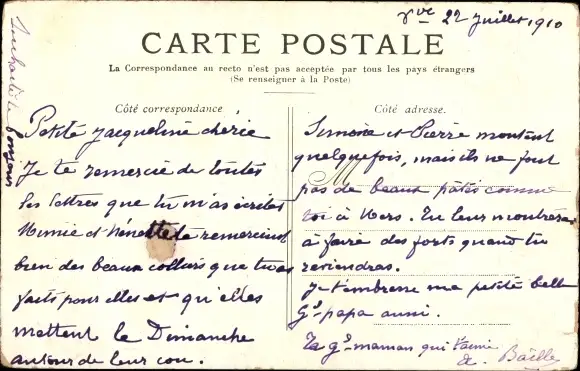 vve 22 juillet 1910
CARTE POSTALE
La Correspondance au recto n'est pas acceptée par tous les pays étrangers
(Se renseigner à la Poste)
Côté correspondance
Petite Jacqueline chérie
Je te remercie de toutes
les lettres que tu m'as écrites
Mimie et Nénette te remercient
bien des beaux colliers que tu as
faits pour elles et qu'elles
mettent le Dimanche
autour de leur cou.
Côté adresse.
Simone et Pierre montent
quelquefois, mais ils ne font
pas de beaux pâtés comme
toi à Mers. Tu leur montreras
à faire des forts quand tu
reviendras.
Je t'embrasse ma petite belle
Gd papa aussi.
Ta gd maman qui t'aime
Baëlle
bonjour